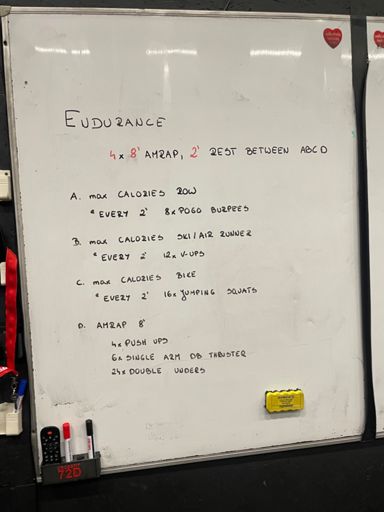 ENDURANCE
4x 8' AMRAP, 2' REST BETWEEN ABCD
A. max CALORIES ROW
* EVERY 2' 8x POGO BURPEES
B. max CALORIES SKI/AIR RUNNER
* EVERY 2' 12x V-UPS
C. max CALORIES BIKE
* EVERY 2' 16x JUMPING SQUATS
D. AMRAP 8'
4x PUSH UPS
6x SINGLE ARM DB THRUSTER
24x DOUBLE UNDERS
72D